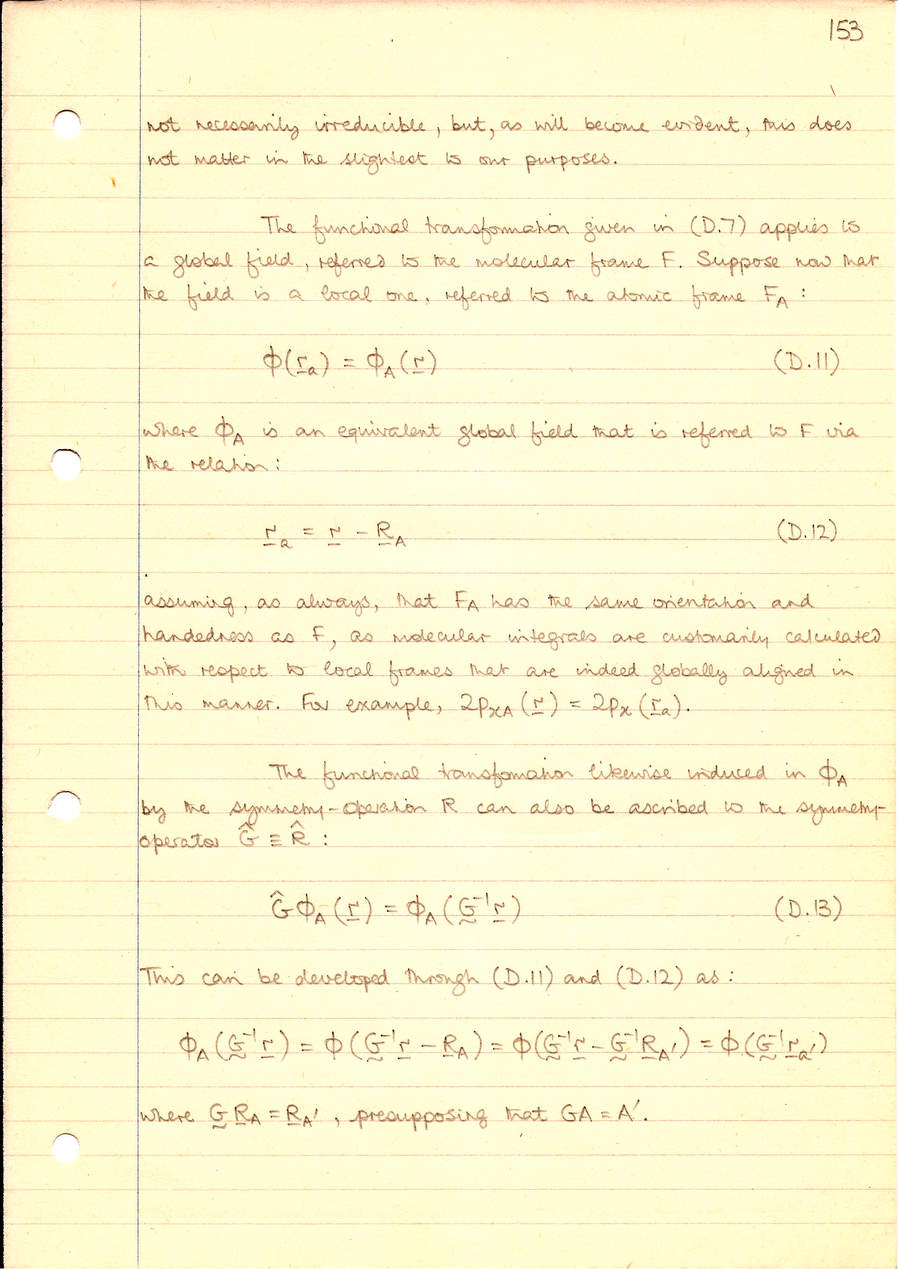 153
not necessarily irreducible, but, as will become evident, this does
not matter in the slightest to our purposes.
The functional transformation given in (D.7) applies to
a global field, referred to the molecular frame F. Suppose now that
the field is a local one, referred to the atomic frame F_A :
ϕ(r̲_a) = ϕ_A(r̲) (D.11)
where ϕ_A is an equivalent global field that is referred to F via
the relation:
r̲_a = r̲ - R̲_A (D.12)
assuming, as always, that F_A has the same orientation and
handedness as F, as molecular integrals are customarily calculated
with respect to local frames that are indeed globally aligned in
this manner. For example, 2p_xA(r̲) = 2p_x(r̲_a).
The functional transfomation likewise induced in ϕ_A
by the symmetry-operation R can also be ascribed to the symmetry-
operator Ĝ ≡ R̂ :
Ĝϕ_A(r̲) = ϕ_A(G̰⁻¹r̲) (D.13)
This can be developed through (D.11) and (D.12) as:
ϕ_A(G̰⁻¹r̲) = ϕ(G̰⁻¹r̲ - R̲_A) = ϕ(G̰⁻¹r̲ - G̰⁻¹R̲_A′) = ϕ(G̰⁻¹r̲_a′)
where G̰R̲_A = R̲_A′, presupposing that GA = A′.